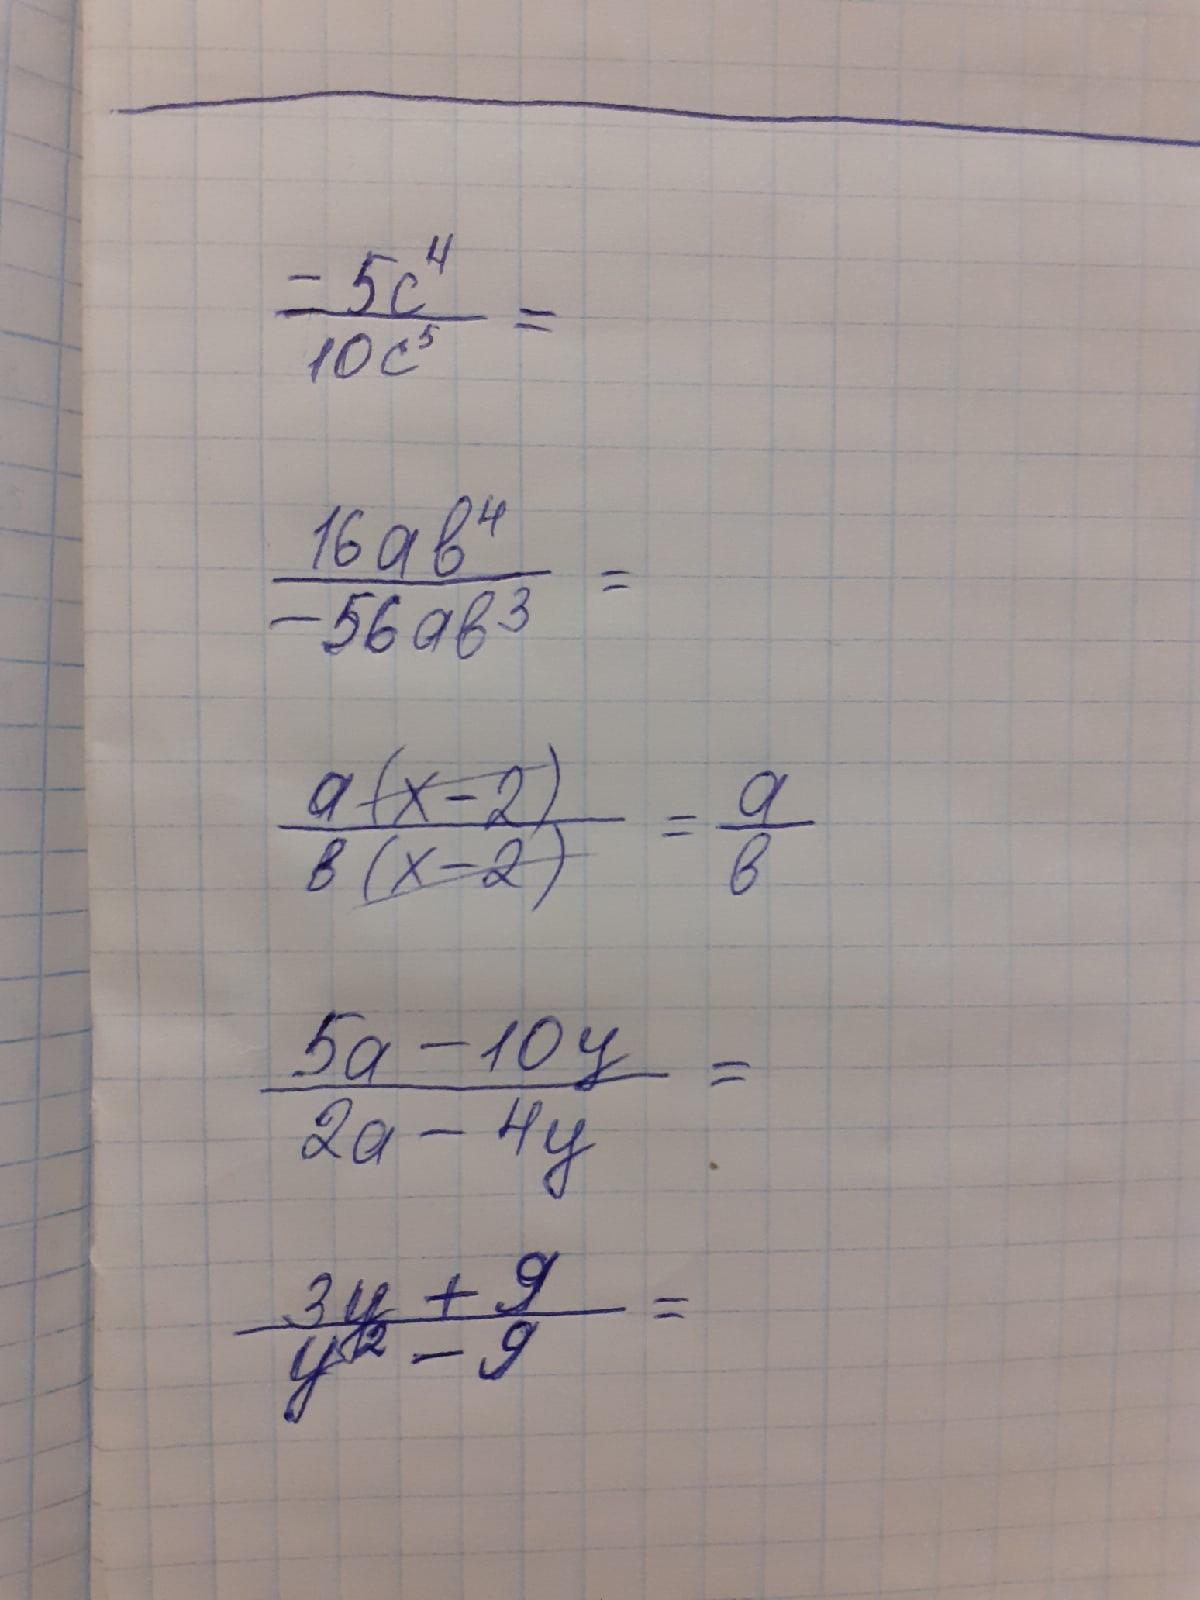 -5c⁴
10c⁵ =
16ab⁴
-56ab³ =
a(x-2)
b(x-2) = a
b
5a-10y
2a-4y =
3y+9
y²-9 =